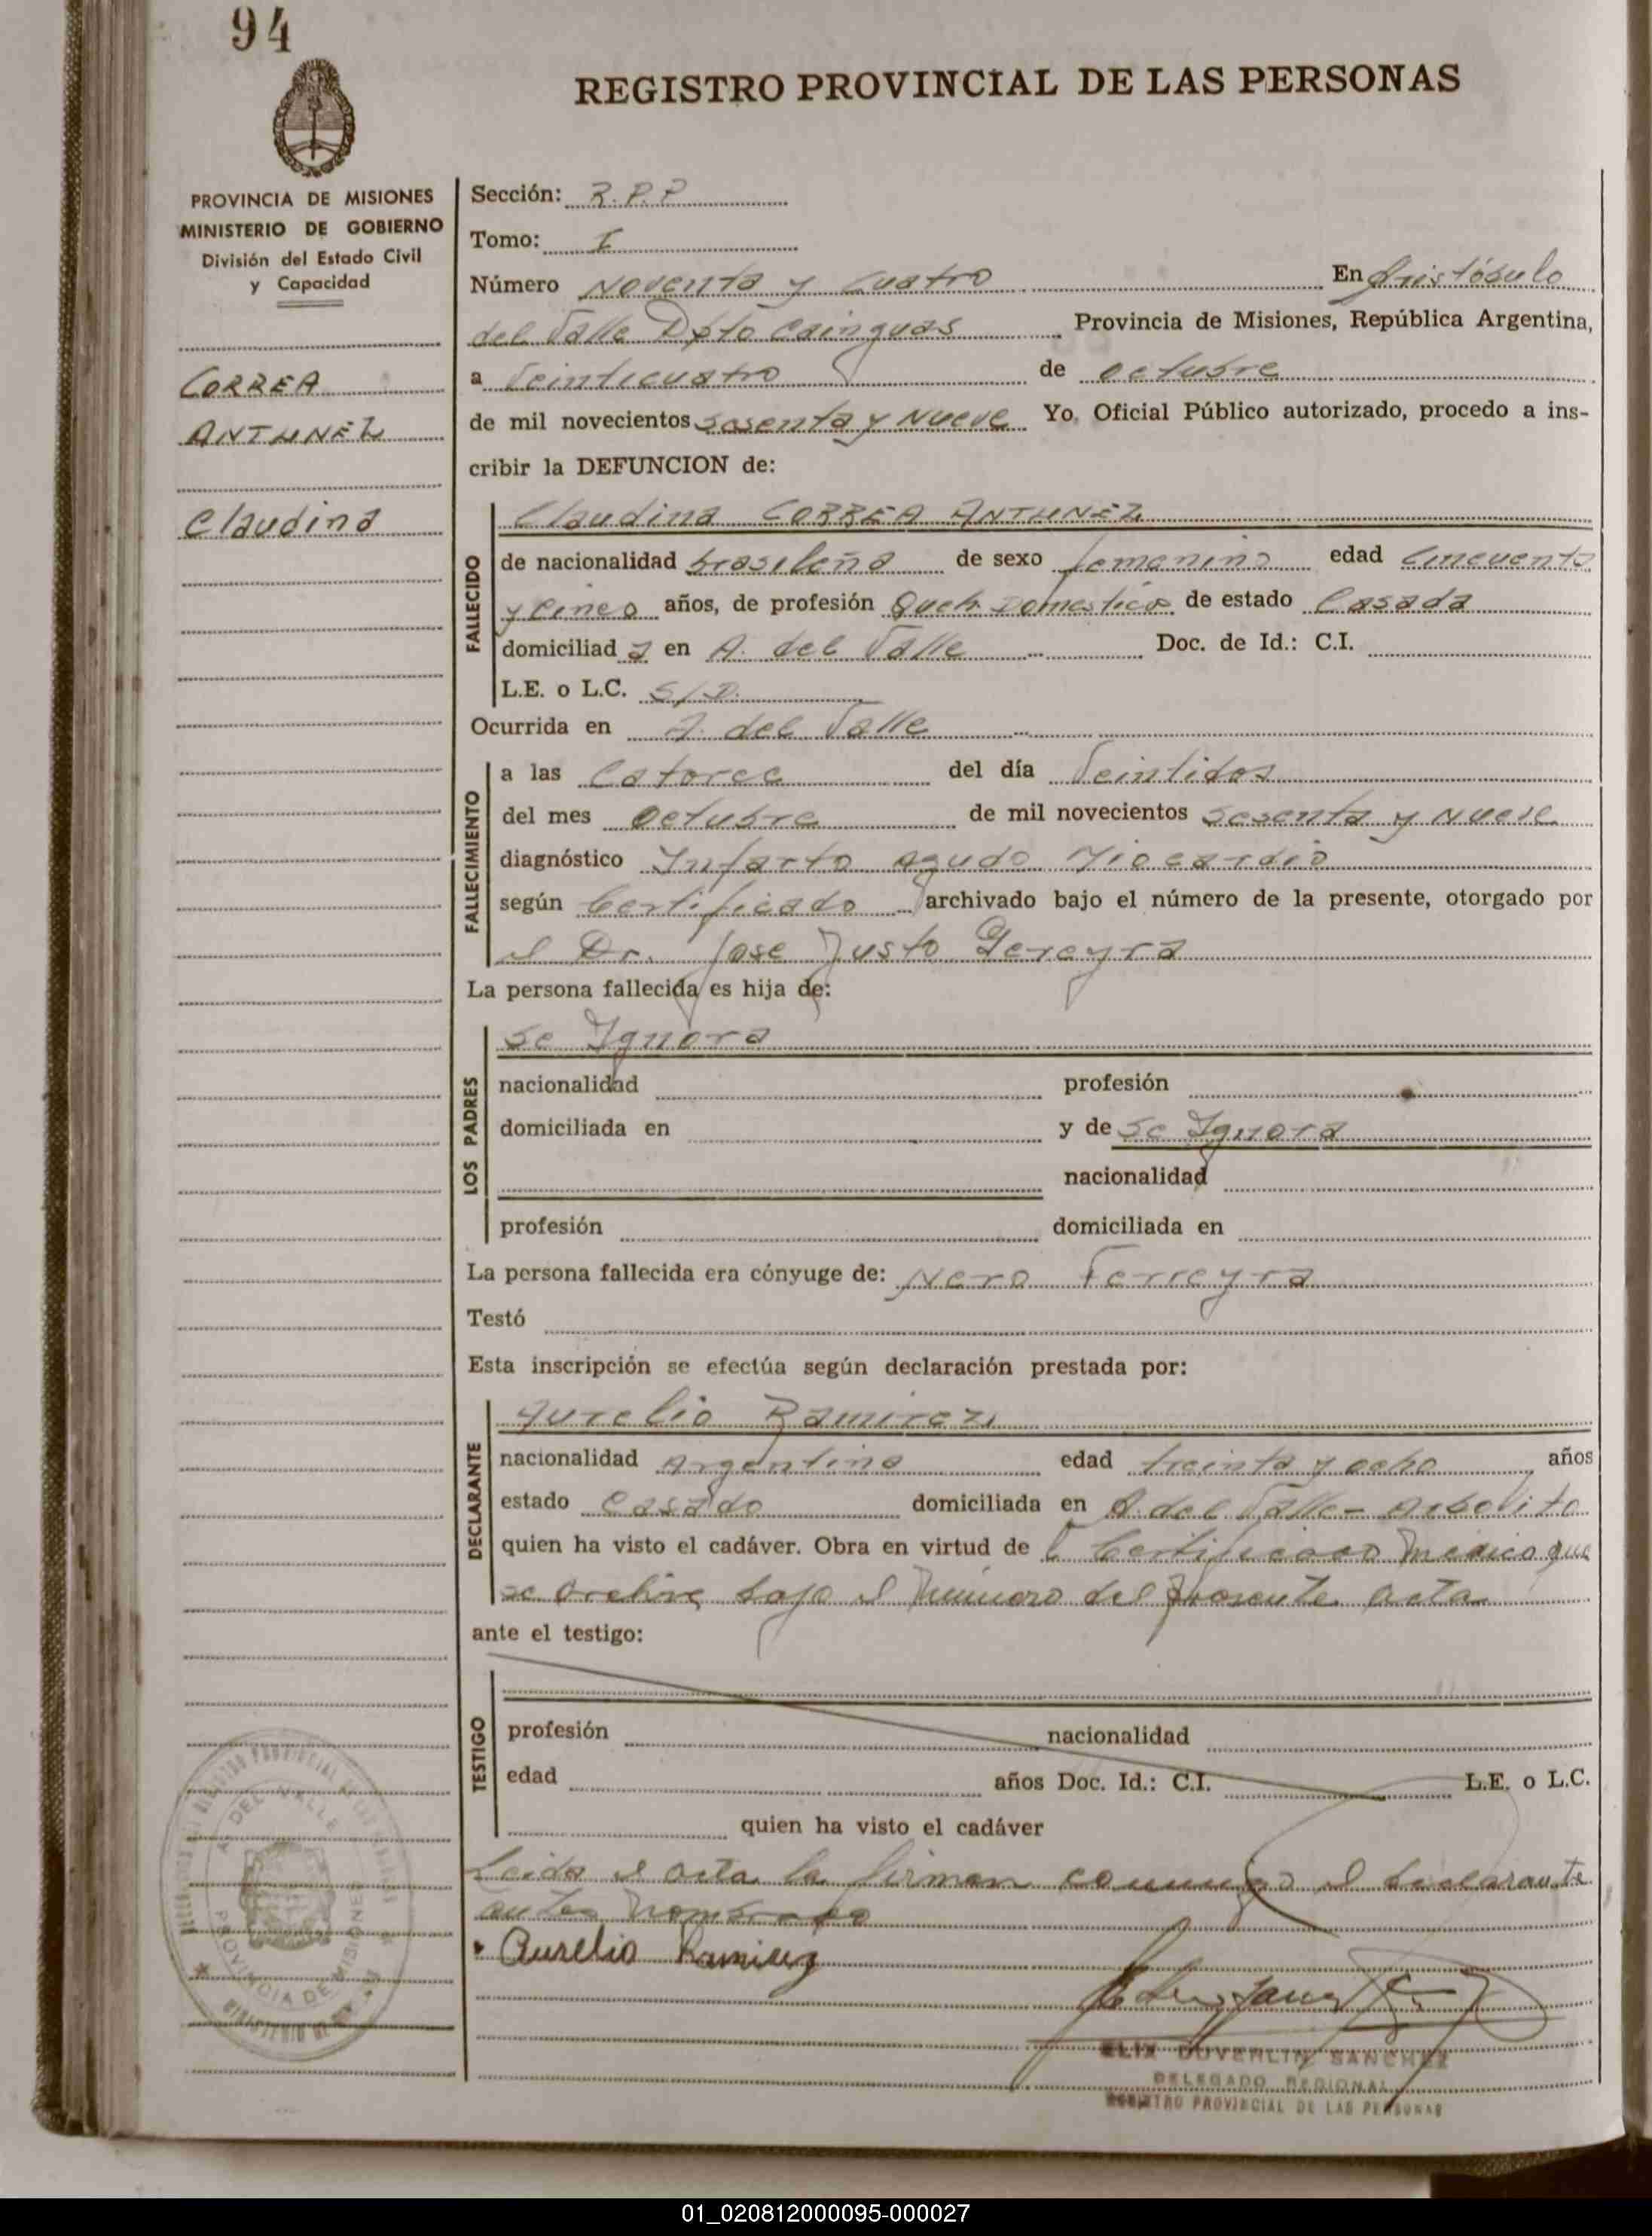 94
REGISTRO PROVINCIAL DE LAS PERSONAS
PROVINCIA DE MISIONES
MINISTERIO DE GOBIERNO
División del Estado Civil
y Capacidad
CORREA
ANTUNEZ
Claudina
Sección: R.P.P
Tomo: I
Número Noventa y Cuatro En Aristóbulo
del Valle Dpto Cainguas Provincia de Misiones, República Argentina,
a Veinticuatro de octubre
de mil novecientos sesenta y Nueve Yo, Oficial Público autorizado, procedo a ins-
cribir la DEFUNCION de:
FALLECIDO
Claudina CORREA ANTUNEZ
de nacionalidad brasileña de sexo femenino edad Cincuenta
y Cinco años, de profesión Queh. Domesticos de estado Casada
domiciliad a en A. del Valle Doc. de Id.: C.I.
L.E. o L.C. S/D.
Ocurrida en A. del Valle
FALLECIMIENTO
a las Catorce del día Veintidos
del mes Octubre de mil novecientos Sesenta y Nueve
diagnóstico Infarto Agudo Miocardio
según Certificado archivado bajo el número de la presente, otorgado por
el Dr. Jose Justo Pereyra
La persona fallecida es hija de:
LOS PADRES
Se Ignora
nacionalidad profesión
domiciliada en y de Se Ignora
nacionalidad
profesión domiciliada en
La persona fallecida era cónyuge de: Nero Ferreyra
Testó
Esta inscripción se efectúa según declaración prestada por:
DECLARANTE
Aurelio Ramirez
nacionalidad Argentina edad treinta y ocho años
estado Casado domiciliada en A. del Valle - Arbolito
quien ha visto el cadáver. Obra en virtud de l Certificado Medico que
se archiva bajo el Numero del presente acta
ante el testigo:
TESTIGO
profesión nacionalidad
edad años Doc. Id.: C.I. L.E. o L.C.
quien ha visto el cadáver
Leida el acta la firman conmigo el declarante
antes nombrado
Aurelio Ramirez
A. DEL VALLE
PROVINCIA DE MISIONES
SANCHEZ
DELEGADO REGIONAL
REGISTRO PROVINCIAL DE LAS PERSONAS
01_020812000095-000027